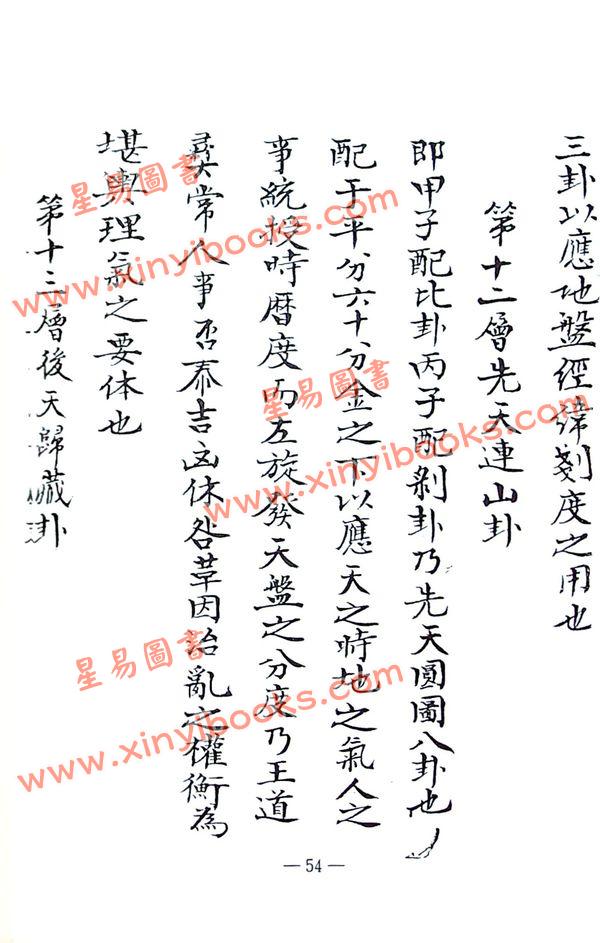 三卦以應地盤經緯刻度之用也
第十二層先天連山卦
即甲子配比卦丙子配剝卦乃先天圓圖八卦也
配于平分六十分金之下以應天之時地之氣人之
事統授時曆度而左旋發天盤之分度乃王道
彝常人事否泰吉凶休咎革因治亂之權衡為
堪輿理氣之要体也
第十三層後天歸藏卦
— 54 —
星易圖書
www.xinyibooks.com
星易圖書
www.xinyibooks.com
星易圖書
www.xinyibooks.com